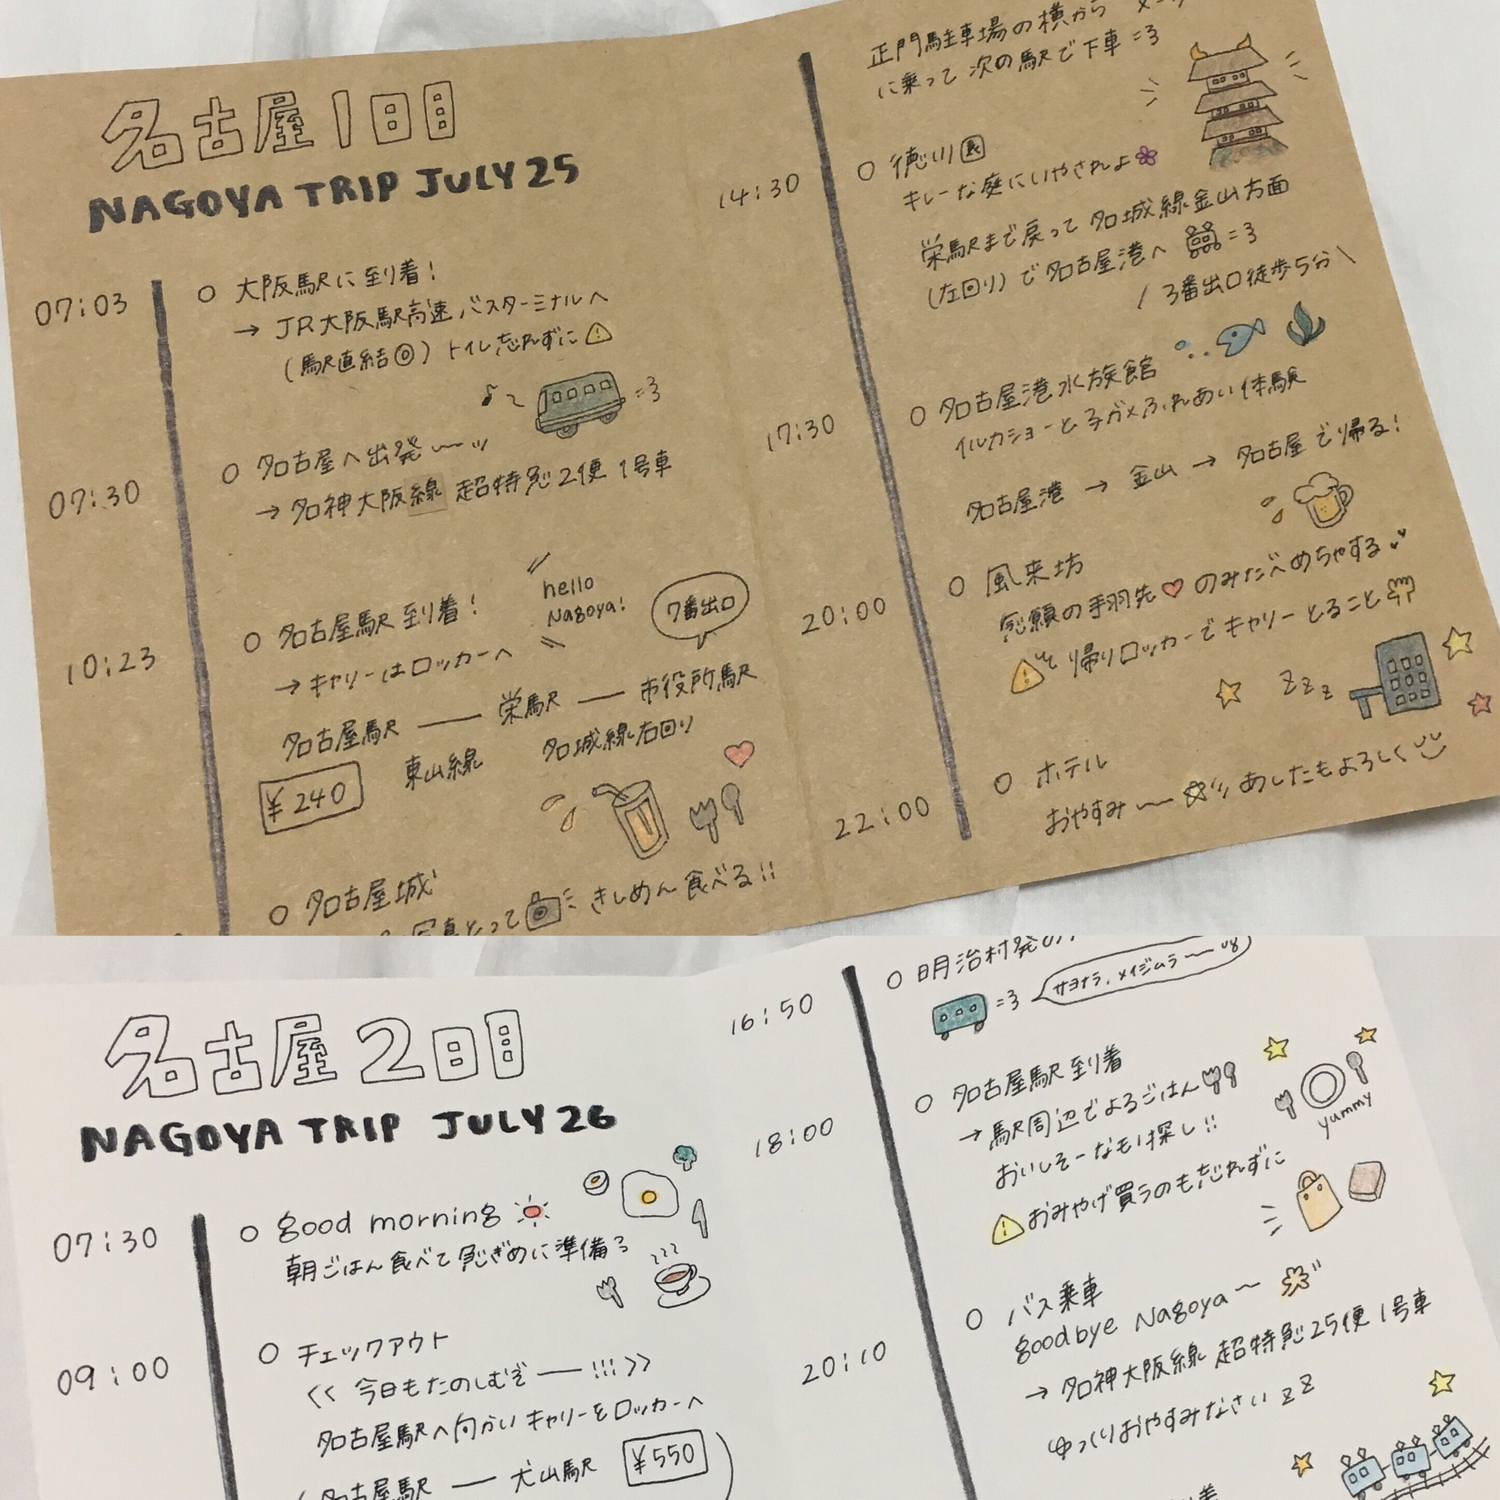 名古屋1日目
NAGOYA TRIP JULY 25
07:03
○ 大阪駅に到着!
→ JR大阪駅高速バスターミナルへ
(駅直結◎) トイレ忘れずに
07:30
○ 名古屋へ出発〜〜ッ
→ 名神大阪線 超特急2便 1号車
10:23
○ 名古屋駅到着!
hello
Nagoya!
→ キャリーはロッカーへ
7番出口
名古屋駅 — 栄駅 — 市役所駅
東山線 名城線右回り
¥240
○ 名古屋城
写真とって きしめん食べる!!
正門駐車場の横から
に乗って 次の駅で下車 =3
14:30
○ 徳川園
キレーな庭にいやされよ
栄駅まで戻って 名城線金山方面
(左回り)で 名古屋港へ =3
/ 3番出口徒歩5分 \
17:30
○ 名古屋港水族館
イルカショーと子ガメふれあい体験
名古屋港 → 金山 → 名古屋で帰る!
20:00
○ 風来坊
念願の手羽先♡のみたべめちゃする
帰りロッカーでキャリーとること
zzz
22:00
○ ホテル
おやすみ〜〜☆ あしたもよろしく
名古屋2日目
NAGOYA TRIP JULY 26
07:30
○ good morning
朝ごはん食べて急ぎめに準備
09:00
○ チェックアウト
<< 今日もたのしむぞ — !!! >>
名古屋駅へ向かい キャリーをロッカーへ
(名古屋駅 — 犬山駅 ¥550
16:50
○ 明治村発
=3 サヨナラ、メイジムラ〜〜
18:00
○ 名古屋駅到着
→ 駅周辺でよるごはん
おいしそーなもん探し!!
yummy
おみやげ買うのも忘れずに
20:10
○ バス乗車
goodbye Nagoya〜
→ 名神大阪線 超特急25便 1号車
ゆっくりおやすみなさい zz